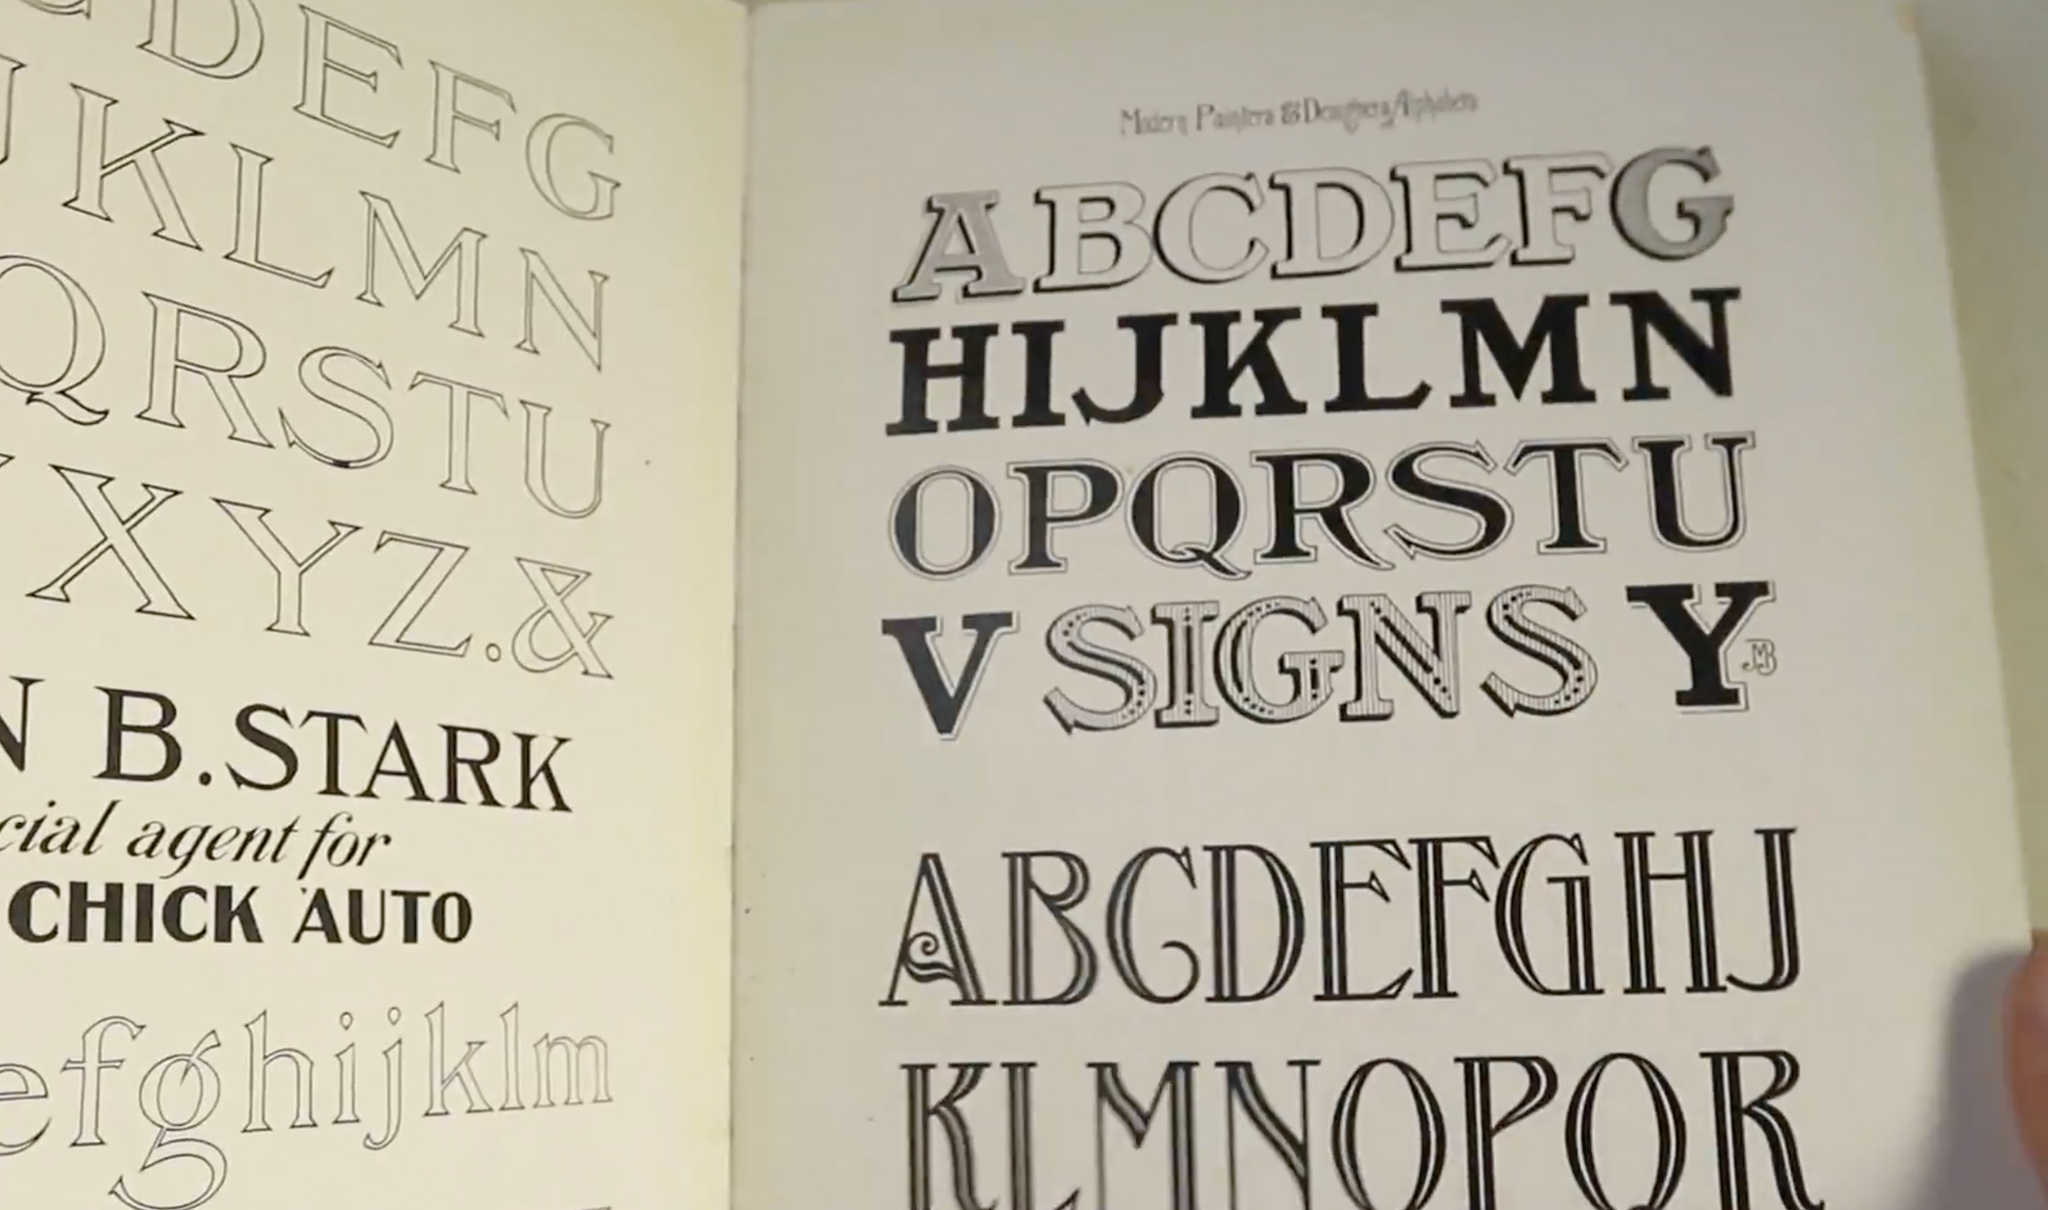 CDEFG
JKLMN
QRSTU
XYZ.&
N B.STARK
cial agent for
CHICK AUTO
efghijklm
Modern Painters & Designers Alphabets
ABCDEFG
HIJKLMN
OPQRSTU
V SIGNS Y
JMB
ABCDEFGHJ
KLMNOPQR